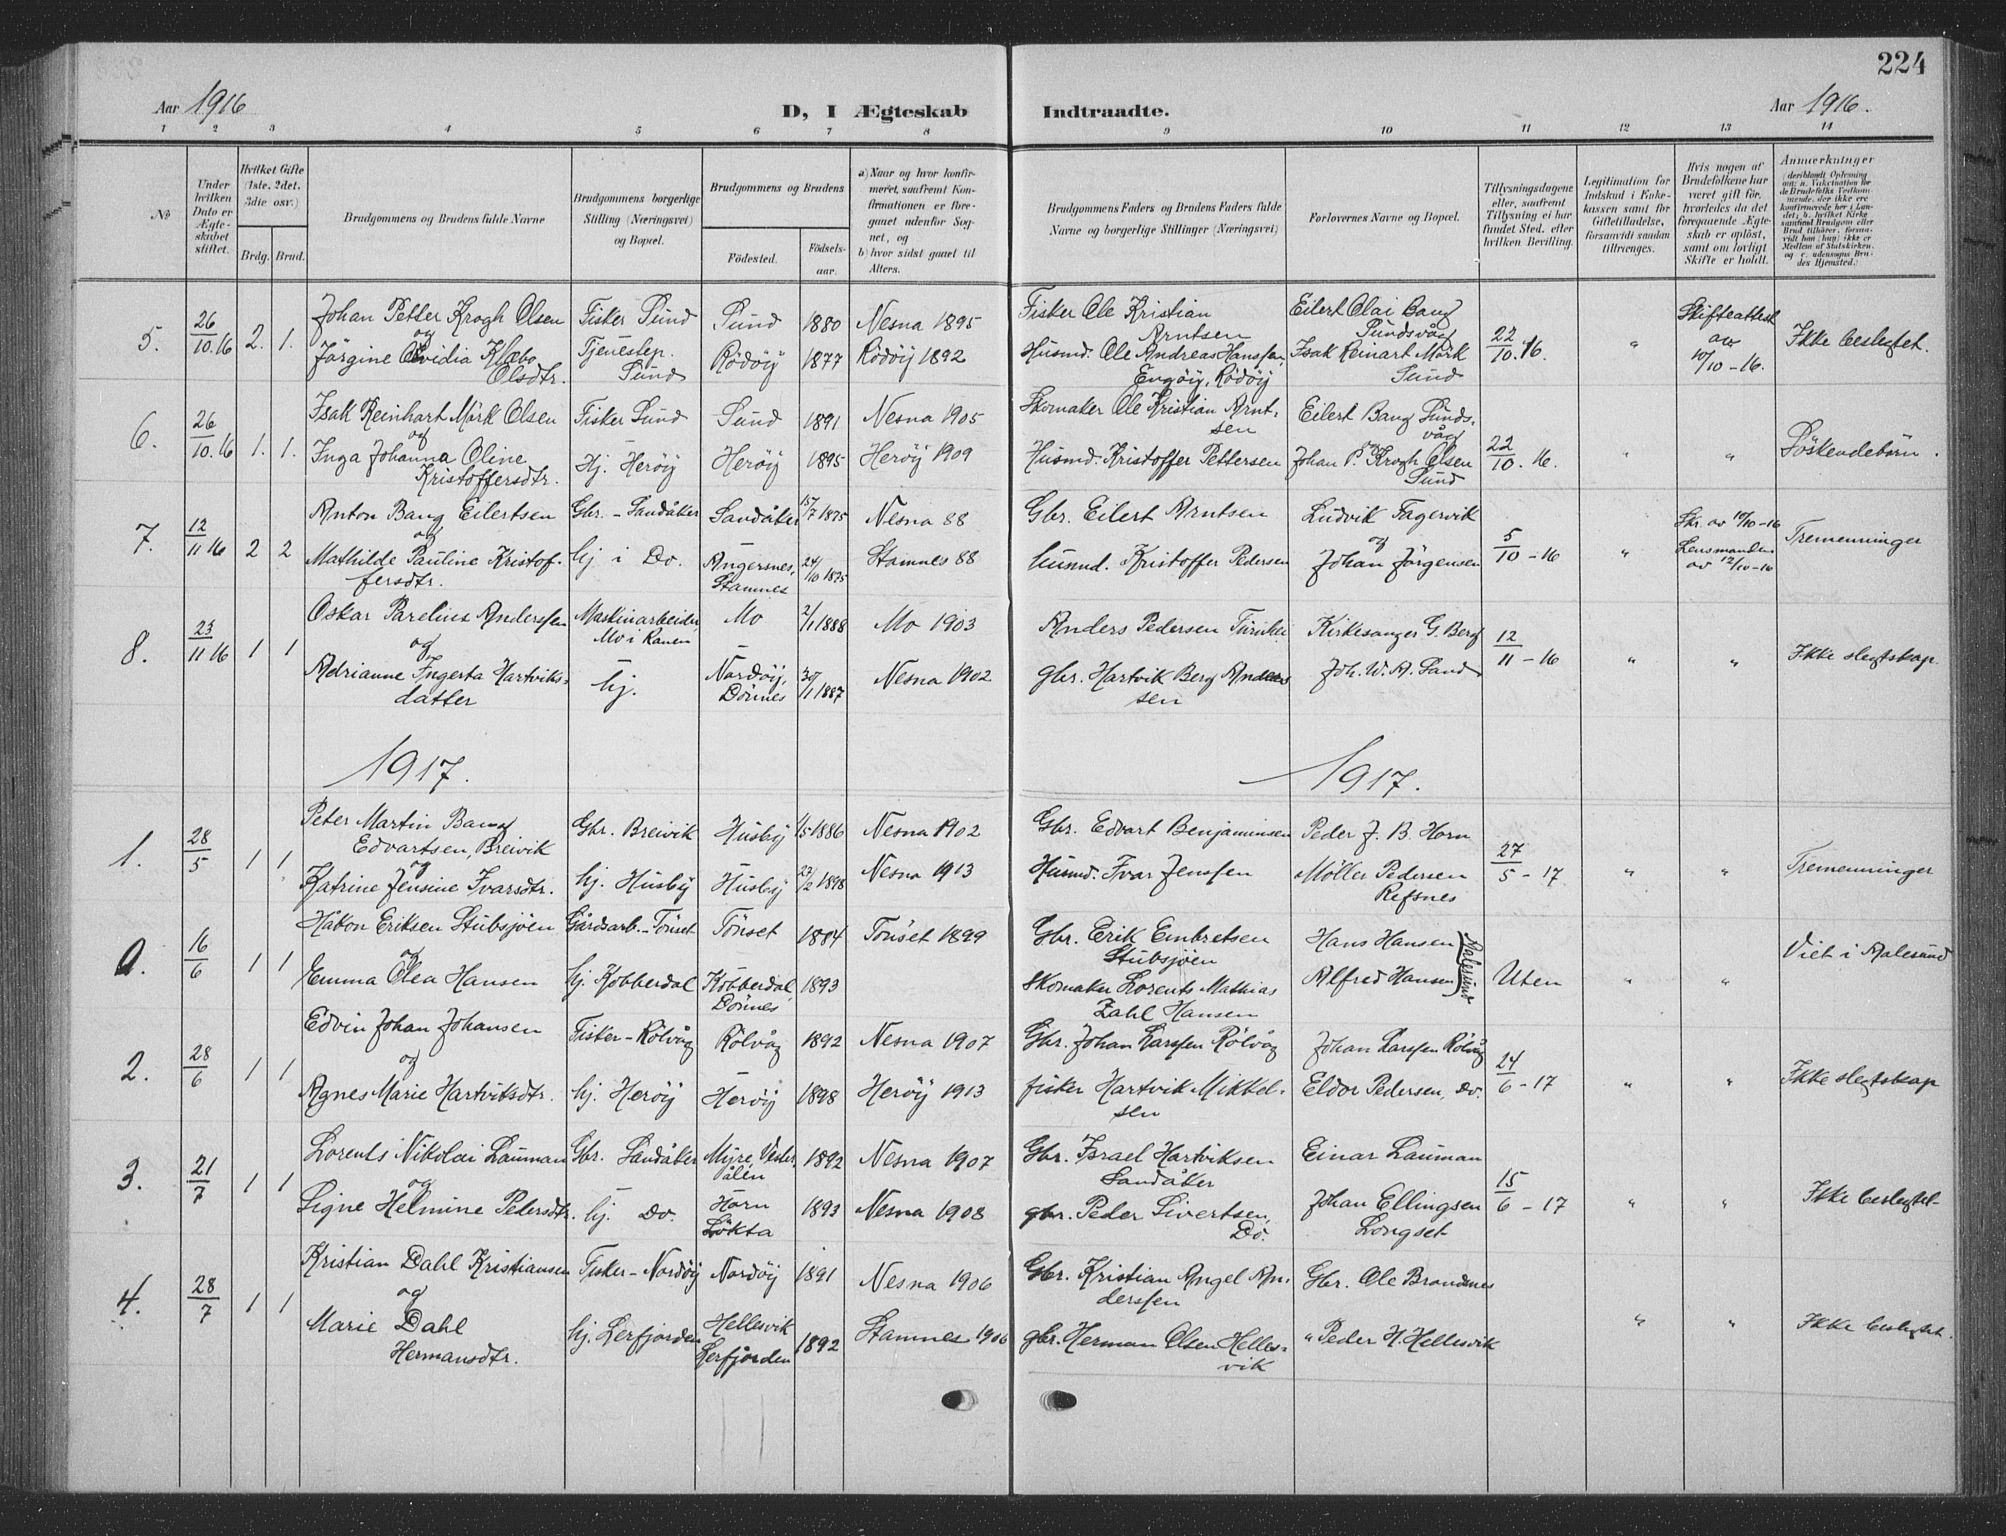 224
Aar 1916
D, I Ægteskab Indtraadte.
Aar 1916.
1 2 3 4 5 6 7 8 9 10 11 12 13 14
No
Under hvilken Dato er Ægteskabet stiftet.
Hvilket Gifte (1ste. 2det. 3die osv.)
Brdg. Brud.
Brudgommens og Brudens fulde Navne
Brudgommens borgerlige Stilling (Næringsvei) og Bopæl.
Brudgommens og Brudens
Födested. Födselsaar.
a) Naar og hvor konfirmeret, saafremt Konfirmationen er foregaaet udenfor Sognet, og
b) hvor sidst gaaet til Alters.
Brudgommens Faders og Brudens Faders fulde Navne og borgerlige Stillinger (Næringsvei)
Forlovernes Navne og Bopæl.
Tillysningsdagene eller, saafremt Tillysning ei har fundet Sted, efter hvilken Bevilling.
Legitimation for Indskud i Enkekassen samt for Giftetilladelse, forsaavidt saadan tiltrænges.
Hvis nogen af Brudefolkene har været gift för, hvorledes da det foregaaende Ægteskab er oplöst, samt om lovligt Skifte er holdt.
Anmærkninger
5. 26/10.16 2. 1. Johan Petter Krogh Olsen
og
Jörgine Ovidia Klæbo
Olsdtr.
Fisker Sund
Tjenestep.
Sund
Sund 1880 Nesna 1895
Rödöy 1877 Rödöy 1892
Fisker Ole Kristian
Arntsen
Husmd. Ole Andreas Hanssen,
Engöy, Rödöy
Eilert Olai Bang
Sundsvåg
Isak Reinart Mörk
Sund
22/10.16.
"
Skifteattest
av
10/10-16.
Ikke beslegtet.
6. 26/10.16 1. 1. Isak Reinhart Mörk Olsen
og
Inga Johanna Oline
Kristoffersdtr.
Fisker Sund
Hj. Heröy
Sund 1891 Nesna 1905
Heröy 1895 Heröy 1909
Skomaker Ole Kristian Arnt-
sen
Husmd. Kristoffer Pettersen
Eilert Bang Sunds-
våg
og
Johan P. Krogh Olsen
Sund
22/10.16.
" "
Söskendebarn.
7. 12/11 16 2 2 Anton Bang Eilertsen
og
Mathilde Pauline Kristof-
fersdtr.
Gbr. - Sandåker
hj i Do.
Sandåker 15/7 1875 Nesna 88
Angersnes,
Stamnes 24/10 1875 Stamnes 88
Gbr. Eilert Arntsen
husmd. Kristoffer Pedersen
Ludvik Fagervik
og
Johan Jörgensen
5/10-16
"
Skr. av 10/10-16
Lensmanden
av 12/10-16
Tremenninger
8. 23/11 16 1 1 Oskar Parelius Anderssen
og
Adrianne Ingerta Hartviks-
datter
Maskinarbeider
Mo i Ranen
hj.
Mo 2/11 1888 Mo 1903
Nordöy,
Dönnes 30/11 1887 Nesna 1902
Anders Pedersen
gbr. Hartvik Berg Anders
sen
Kirkesanger G. Berg
Joh. W. A. Sand
12/11-16
" "
Ikke slegtskap.
1917. 1917.
1. 28/5 1 1 Peter Martin Bang
Edvartsen, Breivik
og
Katrine Jensine Ivarsdtr.
Gbr. Breivik
hj. Husby
Husby 1/5 1886 Nesna 1902
Husby 27/2 1898 Nesna 1913
Gbr. Edvart Benjaminsen
Husmd. Ivar Jenssen
Peder J. B. Horn
Möller Pedersen
Refsnes
27/5-17
" "
Tremenninger
0. 16/6 1 1 Håkon Eriksen Stubsjöen
og
Emma Olea Hansen
Gårdsarb.-Tönset
hj. Kobberdal
Tönset 1884 Tönset 1899
Kobberdal,
Dönnes 1893
Gbr. Erik Embretsen
Stubsjöen
Skomaker Lorents Mathias
Zahl Hansen
Hans Hansen
Alfred Hansen
Aalesund
Uten
" "
Viet i Aalesund
2. 28/6 1 1 Edvin Johan Johansen
og
Agnes Marie Hartviksdtr.
Fisker-Rölvåg
hj. Heröy
Rölvåg 1892 Nesna 1907
Heröy 1898 Heröy 1913
Gbr. Johan Larssen Rölvåg
fisker Hartvik Mikkel-
sen
Johan Larssen Rölvåg
Eldor Pedersen, do.
24/6-17
" "
Ikke slegtskap
3. 21/7 1 1 Lorents Nikolai Lauman
og
Signe Helmine Pedersdtr.
Gbr. Sandåker
hj. Do.
Myre, Vester-
ålen 1892 Nesna 1907
Horn
Lökta 1893 Nesna 1908
Gbr. Israel Hartviksen
Sandåker
gbr. Peder Sivertsen,
Do.
Einar Lauman
Johan Ellingsen
Longset
15/6-17
" "
Ikke beslegtet-
4. 28/7 1 1 Kristian Dahl Kristiansen
og
Marie Dahl
Hermansdtr.
Fisker-Nordöy
hj. Lerfjorden
Nordöy 1891 Nesna 1906
Hellesvik
Lerfjorden 1892 Stamnes 1906
Gbr. Kristian Angel An-
derssen
gbr. Herman Olsen Helles-
vik
Gbr. Ole Brandnes
" Peder H. Hellesvik
" "
Ikke beslegtet.